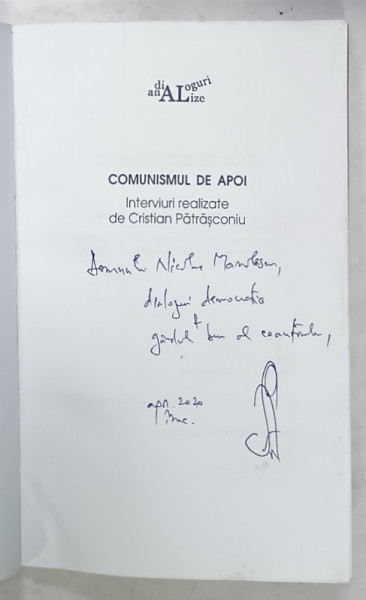 diALoguri
anALize
COMUNISMUL DE APOI
Interviuri realizate
de Cristian Pătrășconiu
Domnului Nicolae Manolescu,
dialoguri democratice
+
gândul bun al coautorului,
apr. 2020
Buc.